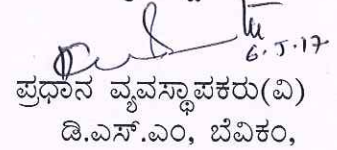 6.5.17
ಪ್ರಧಾನ ವ್ಯವಸ್ಥಾಪಕರು(ವಿ)
ಡಿ.ಎಸ್.ಎಂ, ಬೆವಿಕಂ,